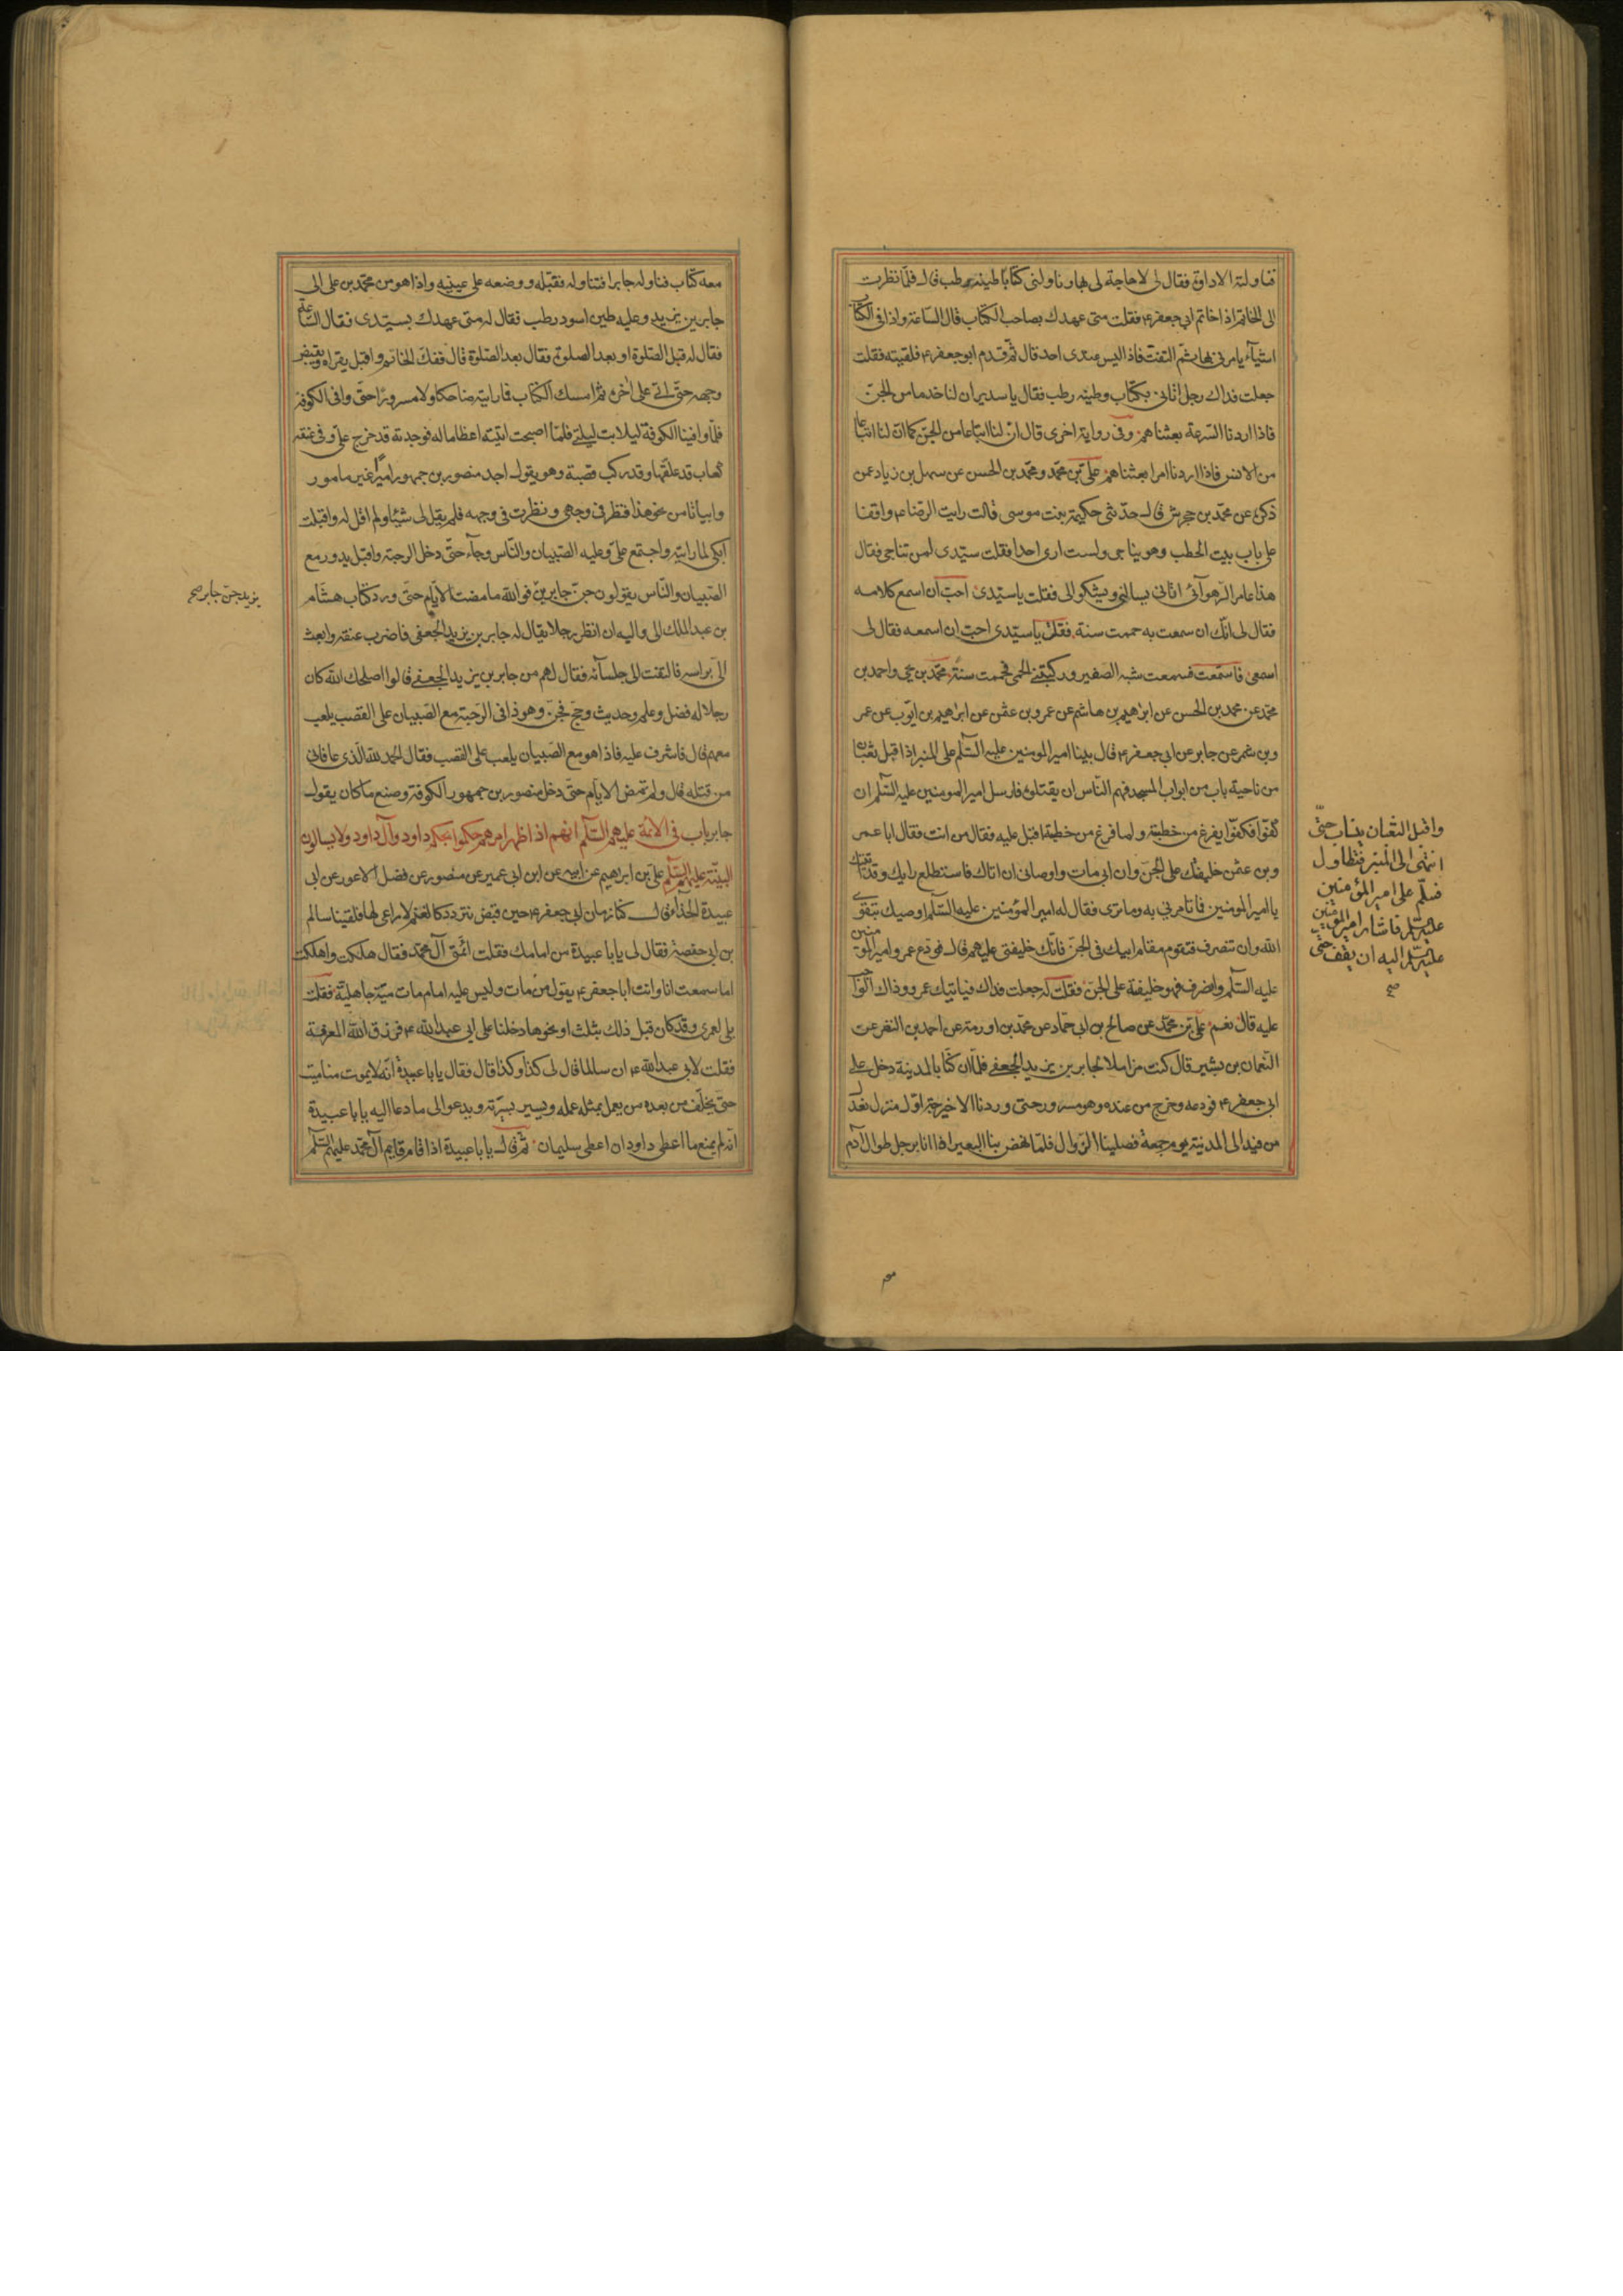 فناولته الاداوة فقال لى لا حاجة لى بها وناولنى كتابا طينه رطب قال فلمّا نظرت
الى الخاتم اذا خاتم ابى جعفر ع فقلت متى عهدك بصاحب الكتاب قال السّاعة واذا فى الكتاب
اشيآء يامرنى بها ثمّ التفتّ فاذا ليس عندى احد قال ثمّ قدم ابو جعفر ع فلقيته فقلت
جعلت فداك رجل اتانى بكتاب وطينه رطب فقال يا سدير ان لنا خدما من الجنّ
فاذا اردنا السّرعة بعثناهم وفى رواية اخرى قال انّ لنا اتباعا من الجنّ كما انّ لنا اتباعا
من الانس فاذا اردنا امرا بعثناهم علىّ بن محمّد ومحمّد بن الحسن عن سهل بن زياد عمن
ذكره عن محمّد بن جحرش قال حدّثتنى حكيمة بنت موسى قالت رايت الرّضا ع واقفا
على باب بيت الحطب وهو يناجى ولست ارى احدا فقلت سيّدى لمن تناجى فقال
هذا عامر الزهرآئى اتانى يسالنى ويشكو الى فقلت يا سيّدى احبّ ان اسمع كلامه
فقال لى انّك ان سمعت به حممت سنة فقلت يا سيّدى احبّ ان اسمعه فقال لى
اسمعى فاستمعت فسمعت شبه الصّفير وركبتنى الحمى فحممت سنة محمّد بن يحيى واحمد بن
محمّد عن محمد بن الحسن عن ابراهيم بن هاشم عن عمرو بن عثمن عن ابراهيم بن ايّوب عن عمر
وبن شمر عن جابر عن ابى جعفر ع قال بينا امير المومنين عليه السّلم على المنبر اذا قبل ثعبان
من ناحية باب من ابواب المسجد فهم النّاس ان يقتلوه فارسل امير المومنين عليه السّلم ان
كفّوا فكفّوا يفرغ من خطبته ولما فرغ من خطبته اقبل عليه فقال من انت فقال انا عمر
وبن عثمن خليفتك على الجنّ وان ابى مات واوصانى ان اتاك فاستطلع رايك وقد اتيتك
يا امير المومنين فما تامرنى به وما ترى فقال له امير المؤمنين عليه السّلم اوصيك بتقوى
الله وان تنصرف فتقوم مقام ابيك فى الجنّ فانّك خليفتى عليهم قال فودّع عمرو امير المومنين
عليه السّلم وانصرف فهو خليفته على الجنّ فقلت له جعلت فداك فياتيك عمرو وذاك الواجب
عليه قال نعم علىّ بن محمّد عن صالح بن ابى حمّاد عن محمّد بن اورمة عن احمد بن النضر عن
النّعمان بن بشير قال كنت مزاملا لجابر بن يزيد الجعفى فلمّا ان كنّا بالمدينة دخل على
ابى جعفر ع فودعه وخرج من عنده وهو مسرور حتى وردنا الاخيرجة اوّل منزل نعدل
من فيد الى المدينة يوم جمعة فصلينا الزوال فلمّا نهض بنا البعير اذا انا برجل طوال آدم
واقبل الثعبان ينساب حتّى
انتهى الى المنبر فتطاول
فسلّم على امير المؤمنين
عليه السّلم فاشار امير المومنين
عليه السّلم اليه ان يقف حتّى
صح
معه كتاب فناوله جابرا فتناوله فقبّله ووضعه على عينيه واذا هو من محمّد بن على الى
جابر بن يزيد وعليه طين اسود رطب فقال له متى عهدك بسيّدى فقال السّاعة
فقال له قبل الصّلوة او بعد الصلوة فقال بعد الصّلوة قال ففكّ الخاتم واقبل يقراه ويقبض
وجهه حتّى اتى على اخره ثمّ امسك الكتاب فما رايته ضاحكا ولا مسرورا حتّى وافى الكوفة
فلمّا وافينا الكوفة ليلا بت ليلتى فلمّا اصبحت اتيته اعظاما له فوجدته قد خرج علىّ وفى عنقه
كعاب قد علّقها وقد ركب قصبة وهو يقول اجد منصور بن جمهور اميرا غير مامور
وابياتا من نحو هذا فنظر فى وجهى ونظرت فى وجهه فلم يقل لى شيئا ولم اقل له واقبلت
ابكى لما رايته واجتمع علىّ وعليه الصّبيان والنّاس وجآء حتّى دخل الرحبة واقبل يدور مع
الصّبيان والنّاس يقولون جنّ جابر بن فو الله ما مضت الايّام حتّى ورد كتاب هشام
بن عبد الملك الى واليه ان انظر رجلا يقال له جابر بن يزيد الجعفى فاضرب عنقه وابعث
الىّ براسه فالتفت الى جلسآئه فقال لهم من جابر بن يزيد الجعفى قالوا اصلحك الله كان
رجلا له فضل وعلم وحديث وحج فجنّ وهو ذا فى الرّحبة مع الصّبيان على القصب يلعب
معهم قال فاشرف عليه فاذا هو مع الصّبيان يلعب على القصب فقال الحمد لله الّذى عافانى
من قتله قال ولم تمض الايّام حتّى دخل منصور بن جمهور الكوفة وصنع ما كان يقول
جابر باب فى الائمة عليهم السّلم انهم اذا ظهر امرهم حكموا بحكم داود وآل داود ولا يسالون
البيّنة عليهم السّلم علىّ بن ابراهيم عن ابيه عن ابن ابى عمير عن منصور عن فضل الاعور عن ابى
عبيدة الحذآء قال كنّا زمان ابى جعفر ع حين قبض نتردد كالغنم لا راعى لها فلقينا سالم
بن ابى حفصة فقال لى يا با عبيدة من امامك فقلت ائمّتى آل محمّد فقال هلكت واهلكت
اما سمعت انا وانت ابا جعفر ع يقول من مات وليس عليه امام مات ميتة جاهليّة فقلت
بلى لعمرى وقد كان قبل ذلك بثلث او نحوها دخلنا على ابى عبد الله ع فرزق الله المعرفة
فقلت لابى عبد الله ع ان سالما قال لى كذا وكذا قال فقال يا با عبيدة انّه لا يموت منا ميت
حتّى يخلّف من بعده من يعمل بمثل عمله ويسير بسيرته ويدعو الى ما دعا اليه يا با عبيدة
انّه لم يمنع ما اعطى داود ان اعطى سليمان ثمّ قال يا با عبيدة اذا قام قايم آل محمّد عليهم السّلم
يزيد جنّ جابر صح